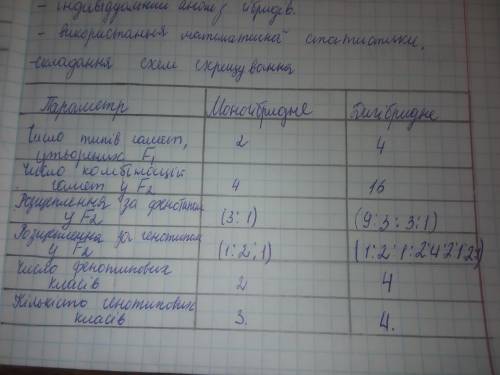 - індивідуальний аналіз гібридів.
- використання математичної статистики,
-складання схем схрещування
Параметр Моногібридне Дигібридне
Число типів гамет, 2 4
утворених F1
Число комбінацій 4 16
гамет у F2
Розщеплення за фенотипом (3:1) (9:3:3:1)
у F2
Розщеплення за генотипом (1:2:1) (1:2:1:2:4:2:1:2:1)
у F2
Число фенотипових 2 4
класів
Кількість генотипових 3. 4.
класів